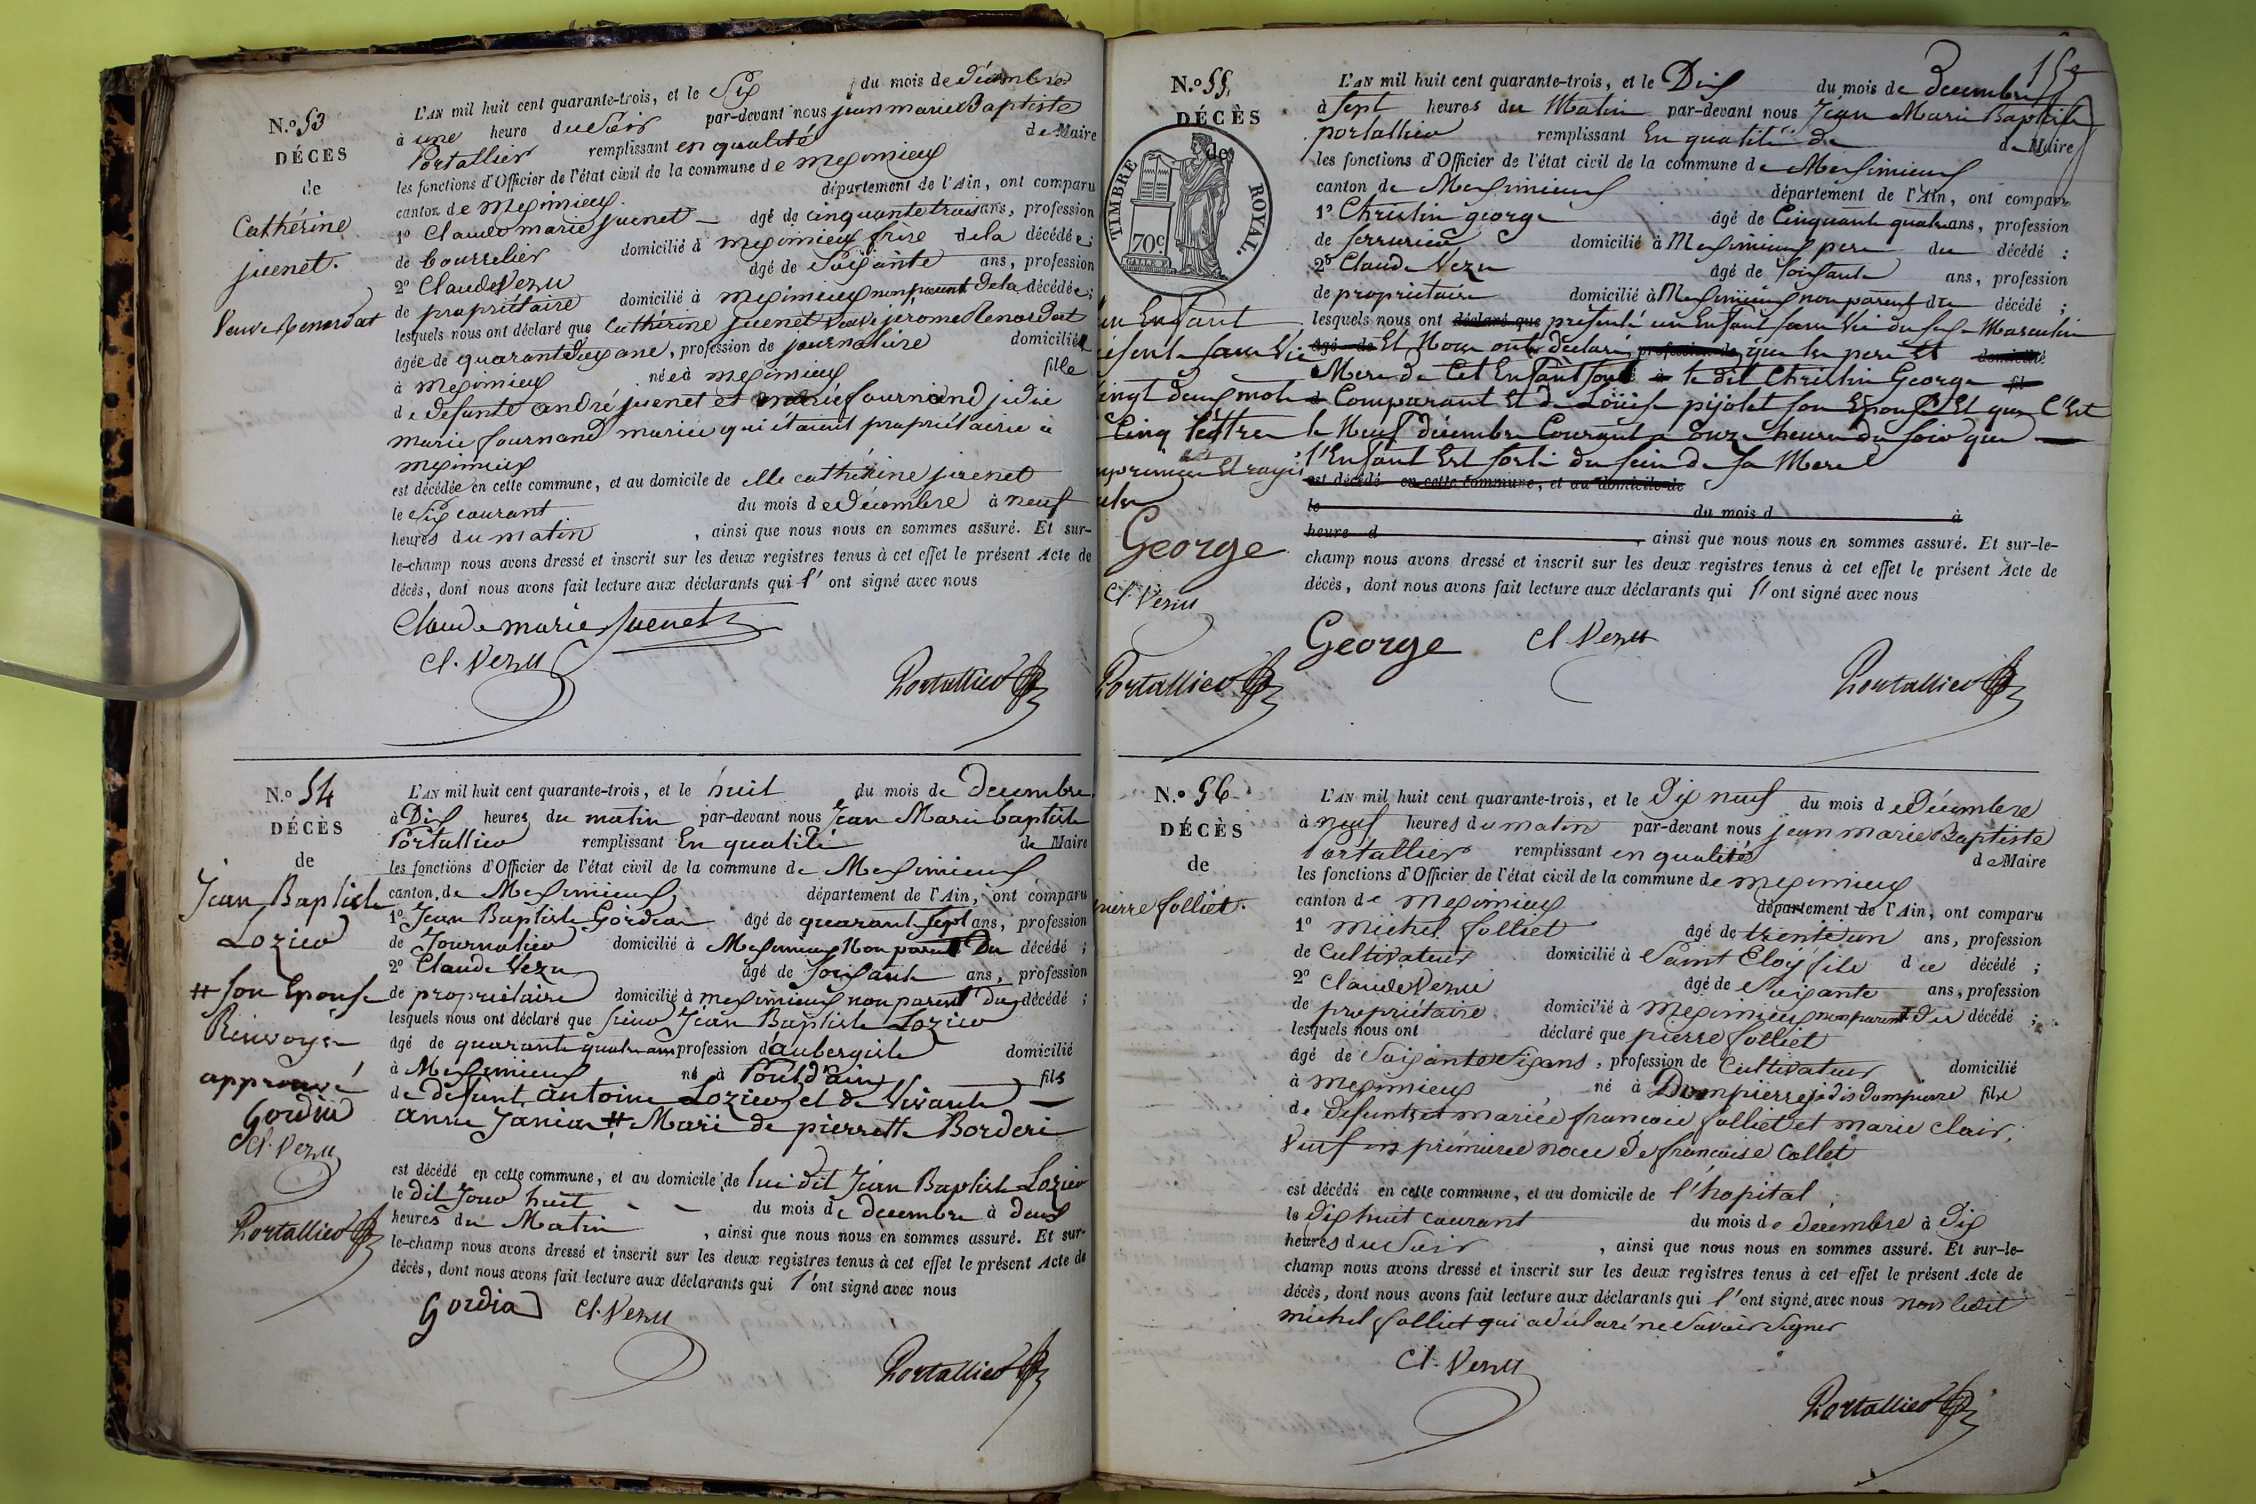 N.o 53
DÉCÈS
de
Cathérine
juenet.
Veuve Renordat
L'AN mil huit cent quarante-trois, et le Six du mois de décembre
à une heure du Soir par-devant nous jean marie Baptiste
Portallier remplissant en qualité de Maire
les fonctions d'Officier de l'état civil de la commune de meximieux
canton de meximieux. département de l'Ain, ont comparu
1o Claude marie juenet âgé de cinquante trois ans, profession
de bourrelier domicilié à meximieux frère de la décédée;
2o Claude Vezu âgé de Soixante ans, profession
de propriétaire domicilié à meximieux non parent de la décédée;
lesquels nous ont déclaré que Cathérine juenet veuve jérome Renordat
âgée de quarante six ans, profession de journalière domiciliée
à meximieux née à meximieux fille
de défunts andré juenet et marie fournand je dis
marie fournand mariés qui étaient propriétaires à
meximieux
est décédée en cette commune, et au domicile de elle cathérine juenet
le Six courant du mois de décembre à neuf
heures du matin, ainsi que nous nous en sommes assuré. Et sur-
le-champ nous avons dressé et inscrit sur les deux registres tenus à cet effet le présent Acte de
décès, dont nous avons fait lecture aux déclarants qui l'ont signé avec nous
Claude marie Juenet
Cl. Vezu
Portallier
N.o 54
DÉCÈS
de
Jean Baptiste
Lozier
# son Epouse
Renvoyé
approuvé
Gordia
Cl. Vezu
Portallier
L'AN mil huit cent quarante-trois, et le huit du mois de Decembre
à Dix heures du matin par-devant nous Jean Marie baptiste
Portallier remplissant En qualité de Maire
les fonctions d'Officier de l'état civil de la commune de Meximieux
canton de Meximieux département de l'Ain, ont comparu
1o Jean Baptiste Gordia âgé de quarante Sept ans, profession
de Journalier domicilié à Meximieux Non parent Du décédé;
2o Claude Vezu âgé de Soixante ans, profession
de propriétaire domicilié à meximieux non parent Du décédé;
lesquels nous ont déclaré que Sieur Jean Baptiste Lozier
âgé de quarante quatre ans profession d'aubergiste domicilié
à Meximieux né à Pont d'ain fils
de défunt antoine Lozier et de Vivante
anne Janin # Mari de pierrette Borderi
est décédé en cette commune, et au domicile de lui dit Jean Baptiste Lozier
le dit Jour huit du mois de decembre à deux
heures du Matin, ainsi que nous nous en sommes assuré. Et sur-
le-champ nous avons dressé et inscrit sur les deux registres tenus à cet effet le présent Acte de
décès, dont nous avons fait lecture aux déclarants qui l'ont signé avec nous
Gordia Cl. Vezu
Portallier
N.o 55
DÉCÈS
de
TIMBRE ROYAL.
70c
un Enfant
présenté sans Vie
vingt deux mots
Cinq lettres
imprimés Et rayés
nuls
George
Cl. Vezu
Portallier
L'AN mil huit cent quarante-trois, et le Dix du mois de Decembre
à Sept heures du Matin par-devant nous Jean Marie Baptiste
portallier remplissant En qualité de de Maire
les fonctions d'Officier de l'état civil de la commune de Meximieux
canton de Meximieux département de l'Ain, ont comparu
1o Christin george âgé de Cinquante quatre ans, profession
de serrurier domicilié à Meximieux pere du décédé;
2o Claude Vezu âgé de soixante ans, profession
de propriétaire domicilié à Meximieux non parent du décédé;
lesquels nous ont déclaré que présenté un Enfant sans Vie du sexe Masculin
âgé de Et Nous ont déclaré, profession de que les pere Et domicilié
Mere de Cet Enfant sont à le dit Christin George fil
Comparant Et de Louise pijolet son Epouse Et que C'est
le Neuf décembre Courant a onze heures du soir que
l'Enfant Est sorti du sein de sa Mere
est décédé en cette commune, et au domicile de
le du mois d à
heure d, ainsi que nous nous en sommes assuré. Et sur-le-
champ nous avons dressé et inscrit sur les deux registres tenus à cet effet le présent Acte de
décès, dont nous avons fait lecture aux déclarants qui l'ont signé avec nous
George Cl. Vezu
Portallier
N.o 56
DÉCÈS
de
pierre folliet.
L'AN mil huit cent quarante-trois, et le Dix neuf du mois de Décembre
à neuf heures du matin par-devant nous jean marie Baptiste
Portallier remplissant en qualité de Maire
les fonctions d'Officier de l'état civil de la commune de meximieux
canton de meximieux département de l'Ain, ont comparu
1o michel folliet âgé de trente un ans, profession
de Cultivateur domicilié à Saint Eloy fils du décédé;
2o Claude Vezu âgé de Soixante ans, profession
de propriétaire domicilié à meximieux non parent du décédé;
lesquels nous ont déclaré que pierre folliet
âgé de Soixante Six ans, profession de Cultivateur domicilié
à meximieux né à Dompierre je dis dompierre fils
de défunts et mariés françois folliet et marie Clair,
Veuf en premieres noces de françoise Collet
est décédé en cette commune, et au domicile de l'hopital
le dix huit courant du mois de décembre à Dix
heures du Soir, ainsi que nous nous en sommes assuré. Et sur-le-
champ nous avons dressé et inscrit sur les deux registres tenus à cet effet le présent Acte de
décès, dont nous avons fait lecture aux déclarants qui l'ont signé avec nous non ledit
michel folliet qui a déclaré ne Savoir Signer
Cl. Vezu
Portallier